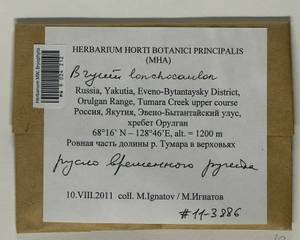 HERBARIUM HORTI BOTANICI PRINCIPALIS
(MHA)
Bryum lonchocaulon
Russia, Yakutia, Eveno-Bytantaysky District,
Orulgan Range, Tumara Creek upper course
Россия, Якутия, Эвено-Бытантайский улус,
хребет Орулган
68°16' N – 128°46'E, alt. = 1200 m
Ровная часть долины р. Тумара в верховьях
русло временного ручейка
10.VIII.2011 coll. M.Ignatov / М.Игнатов
#11-3886